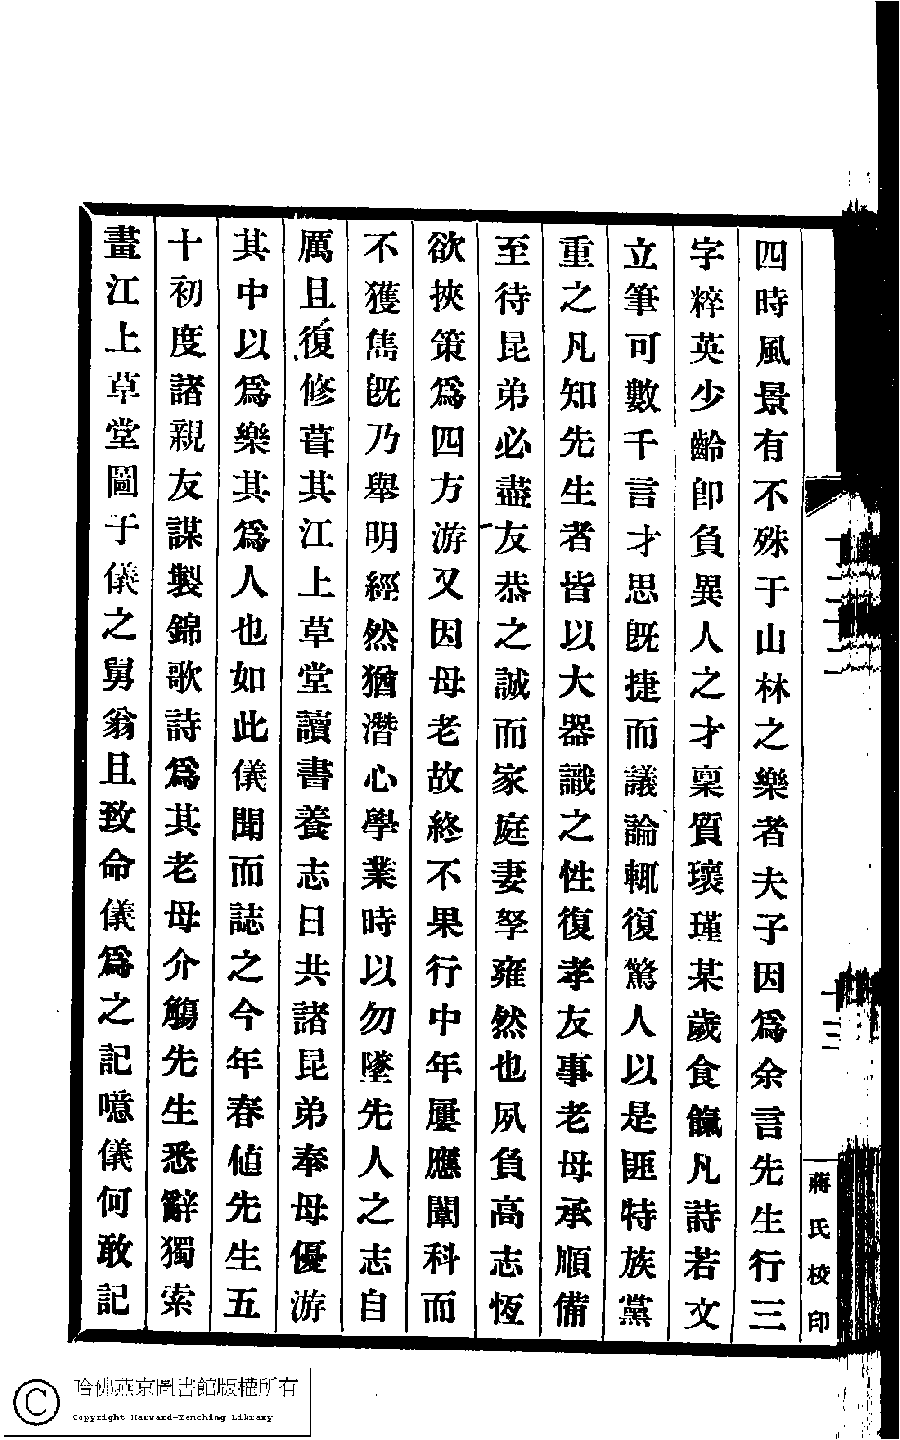 四時風景有不殊于山林之樂者夫子因爲余言先生行三
字粹英少齡卽負異人之才稟質瓌瑾某歲食餼凡詩若文
立筆可數千言才思旣捷而議論輒復驚人以是匪特族黨
重之凡知先生者皆以大器識之性復孝友事老母承順備
至待昆弟必盡友恭之誠而家庭妻孥雍然也夙負高志恆
欲挾策爲四方游又因母老故終不果行中年屢應闈科而
不獲雋旣乃舉明經然猶潛心學業時以勿墜先人之志自
厲且復修葺其江上草堂讀書養志日共諸昆弟奉母優游
其中以爲樂其爲人也如此儀聞而誌之今年春値先生五
十初度諸親友謀製錦歌詩爲其老母介觴先生悉辭獨索
畫江上草堂圖于儀之舅翁且致命儀爲之記噫儀何敢記
十三
蔣氏校印
哈佛燕京圖書館版權所有
Copyright Harvard-Yenching Library